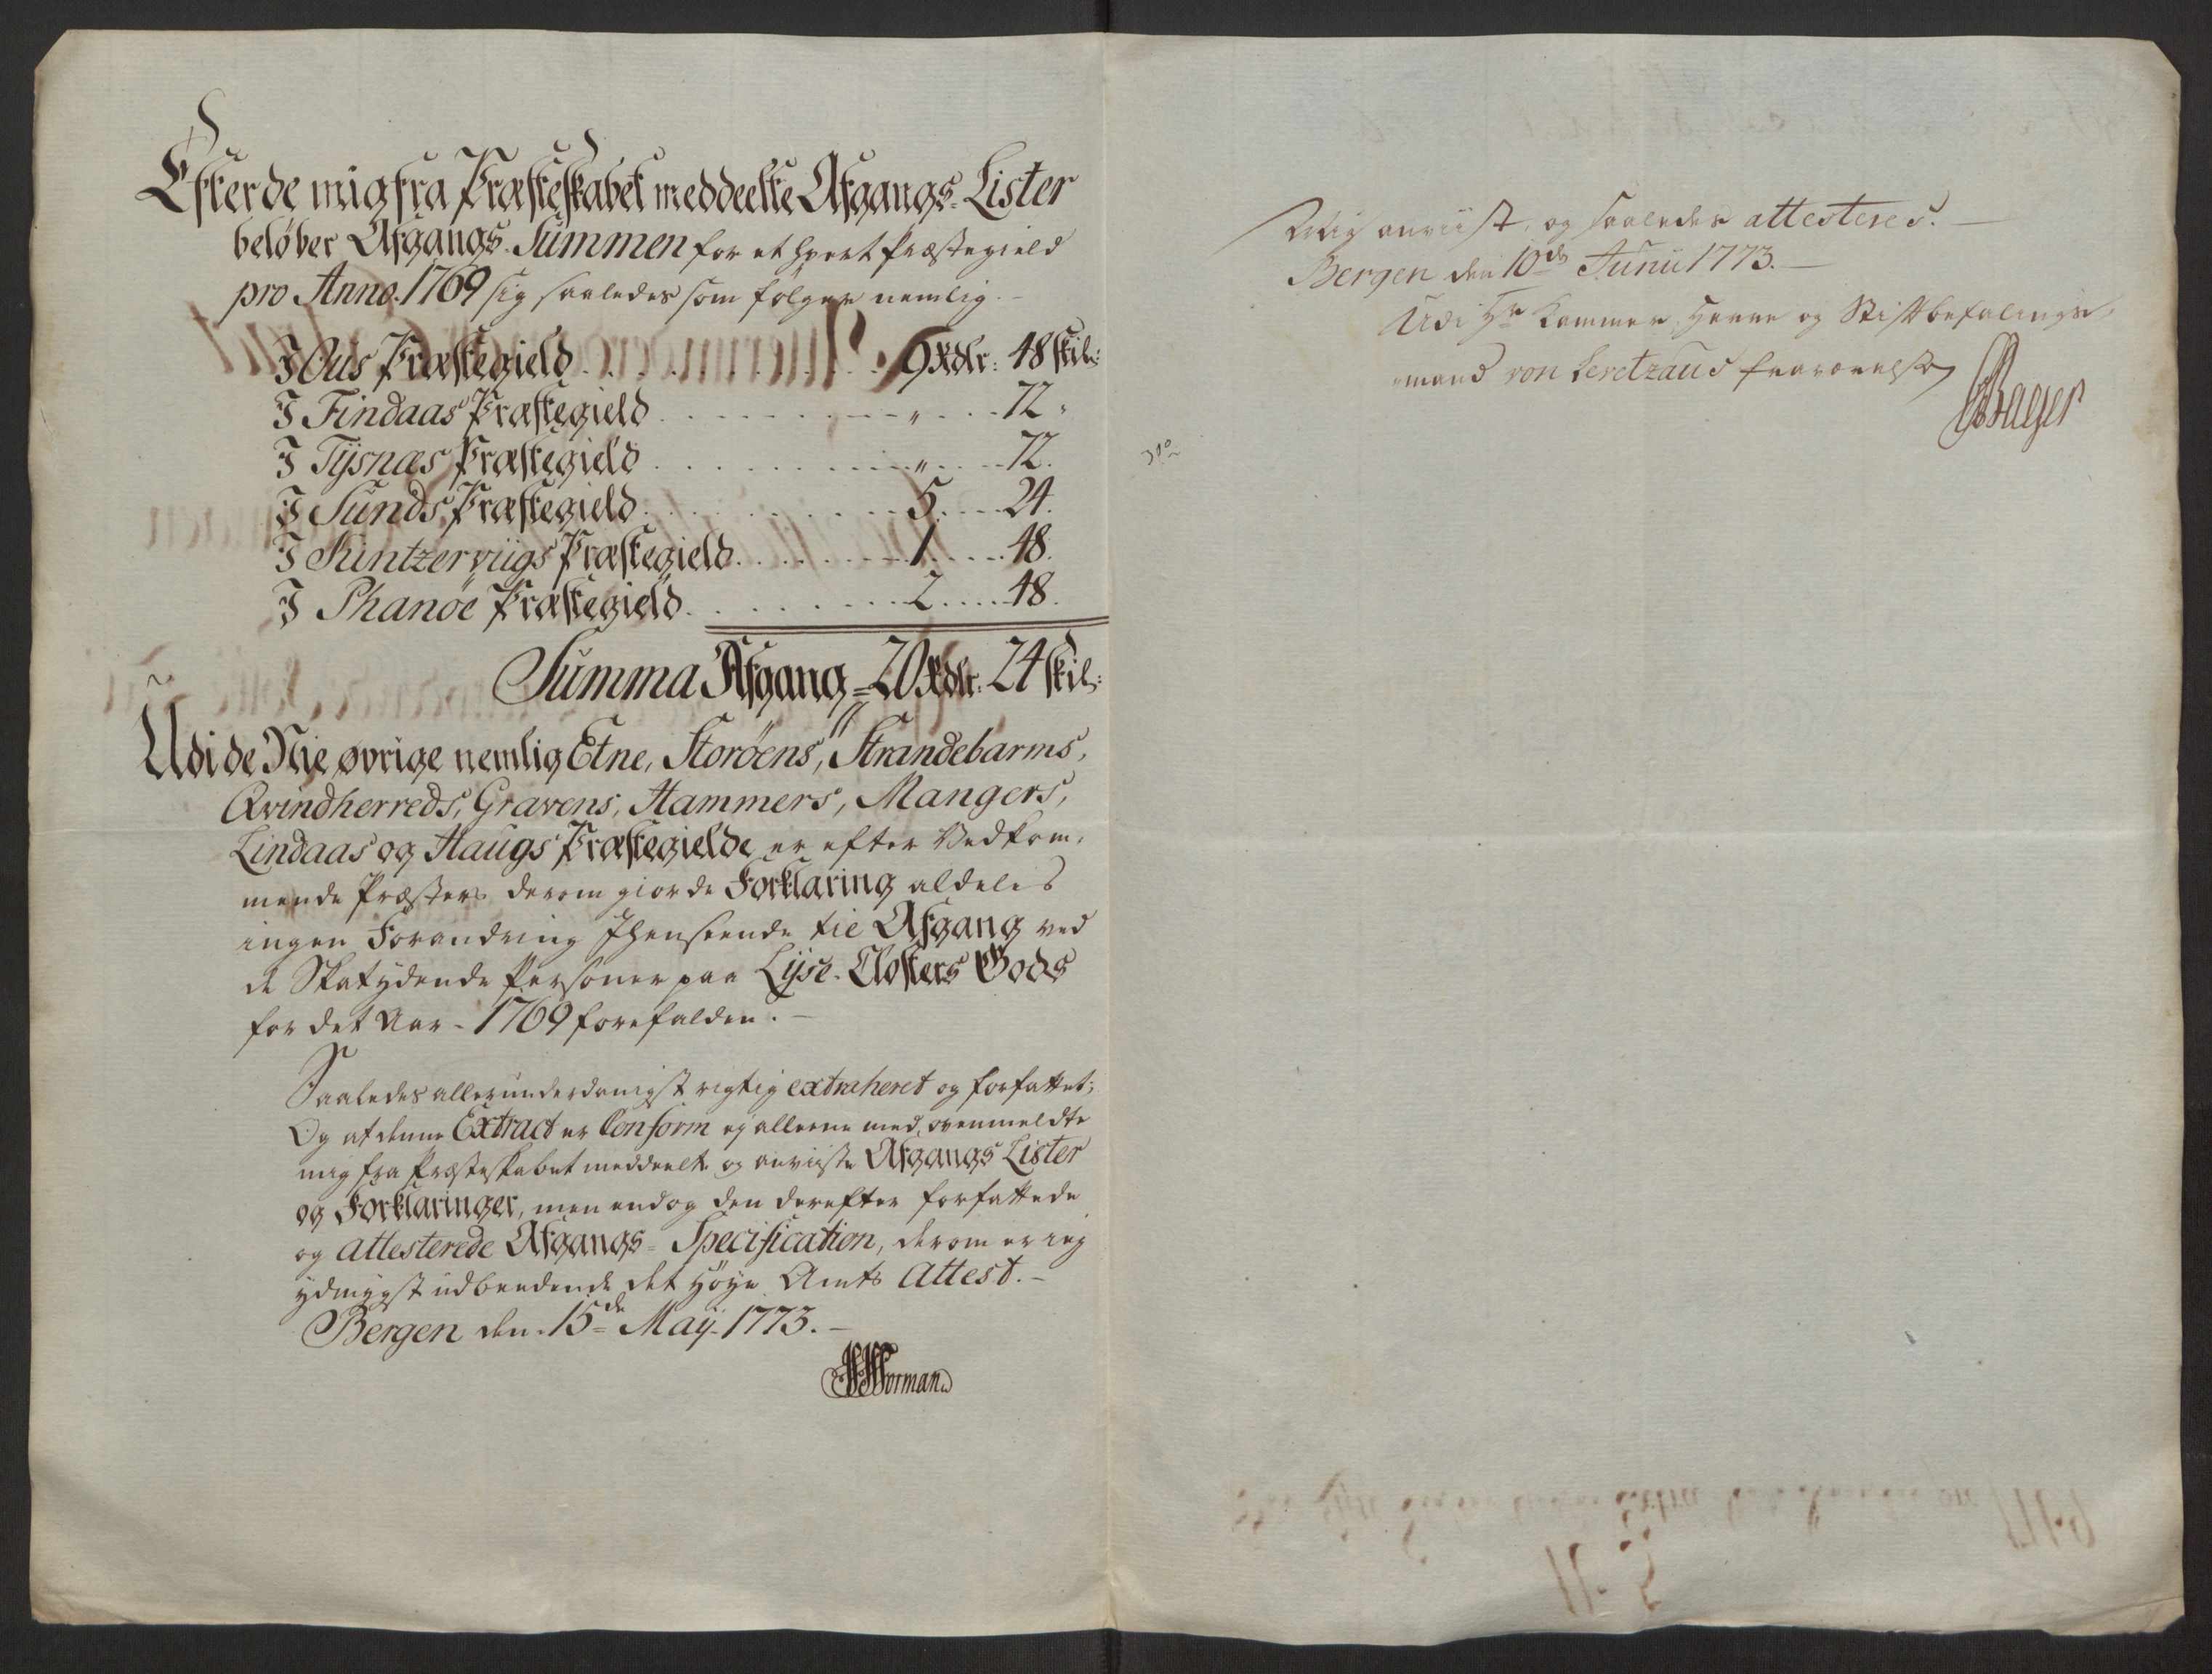 Efter de mig fra Præsteskabet meddeelte Afgangs-Lister
beløber Afgangs-Summen for et hvert Præstegield
pro Anno. 1769 sig saaledes som følger nemlig. -
I Ous Præstegield . . . 9 Rdlr: 48 skil:
I Findaas Præstegield . . . " . . . 72 "
I Tÿsnæs Præstegield . . . " . . . 72.
I Sunds Præstegield . . . 5. . . . 24.
I Kintzerviigs Præstegield . . . 1. . . . 48.
I Phanöe Præstegield . . . 2. . . . 48.
Summa Afgang = 20 Rdlr. 24 skil:
Udi de Nie øvrige nemlig Etne, Storöens, Strandebarms,
Qvindherreds, Gravens, Hammers, Mangers,
Lindaas og Haugs Præstegielde er efter Vedkom-
mende Præsters derom giorde Forklaring aldeles
ingen Forandring Ihenseende til Afgang ved
de Skatydende Personer paa Lÿse-Closters Gods
for det Aar - 1769 forefalden. -
Saaledes allerunderdanigst rigtig extraheret og forfattet;
Og at denne Extract er Conform ej alleene med, ovenmeldte
mig fra Præsteskabet meddeelte og anviiste Afgangs Lister
og Forklaringer, men endog den derefter forfattede
og attesterede Afgangs-Specification, derom er jeg
ydmygst udbedende det Høye Amts Attest. -
Bergen den 15de Maÿ 1773. -
Forman
Mig anviist, og saaledes attesteres. -
Bergen den 10de Junii 1773. -
Udi Hr Kammer Herre og Stiftbefalings-
mand von Levetzaus fraværelse
Bager